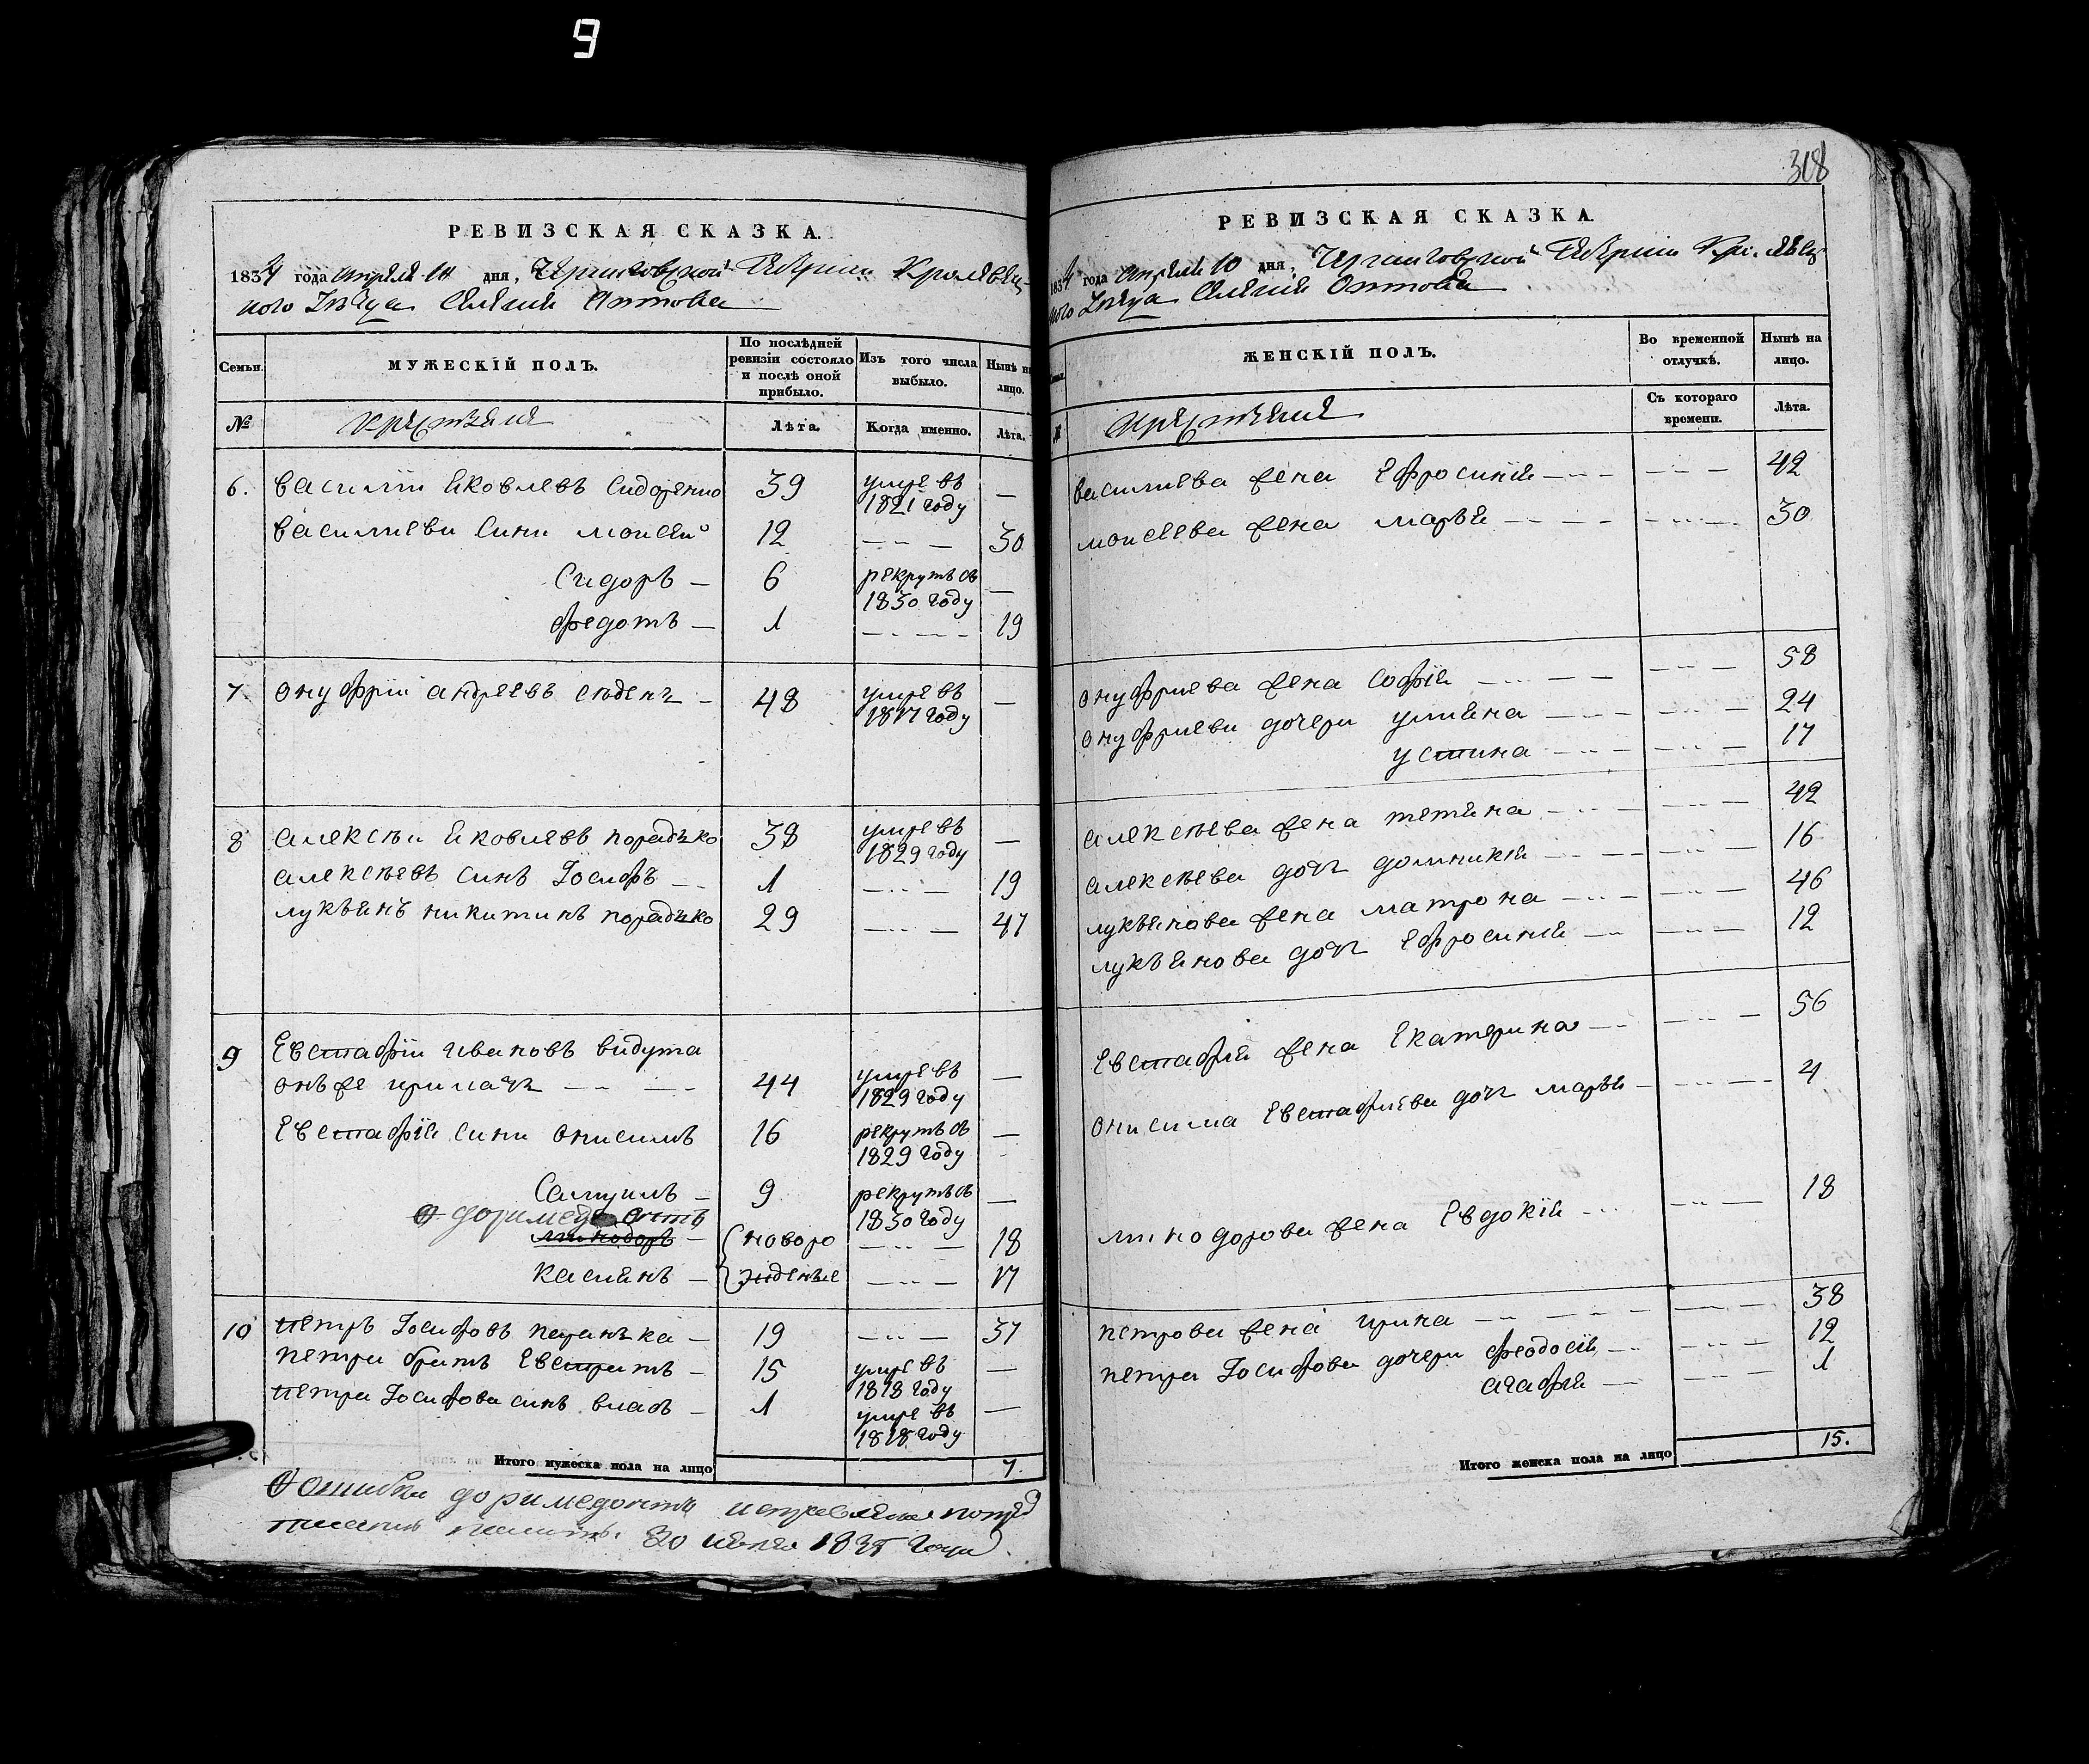 9
РЕВИЗСКАЯ СКАЗКА.
1834 года Апреля 10 дня, Черниговской Губернiи Кролевец-
кого Уезда Селенiя Оттова
Семьи.
МУЖЕСКIЙ ПОЛЪ.
По послѣдней ревизiи состояло и послѣ оной прибыло.
Изъ того числа выбыло.
Нынѣ на лицо.
№
крестьяне
Лѣта.
Когда именно.
Лѣта.
6. Василiи Яковлевъ Сидоренко 39 умре въ 1821 году —
Василиеви сини Моисей 12 — 30
Сидоръ — 6 рекрутъ въ 1830 году —
Федотъ — 1 — 19
7. Онуфрiи Андреевъ 48 умре въ 1817 году —
8 Алексѣи Яковлевъ порадько 38 умре въ 1829 году —
Алексѣевъ синъ Iосифъ — 1 — 19
лукъянъ никитинъ порадько 29 — 47
9 Евстафiи Ивановъ видута
онъже примачъ — 44 умре въ 1829 году —
Евстафiя сини Онисимъ 16 рекрутъ въ 1829 году —
Самуилъ — 9 рекрутъ въ 1830 году —
доримедонтъ
минодоръ — новоро — 18
Касиянъ — жденые — 17
10 петръ Iосифовъ — 19 — 37
петра братъ Евстратъ — 15 умре въ 1818 году —
петра Iосифова синъ власъ — 1 умре въ 1818 году —
Итого мужеска пола на лицо 7.
ошибка доримедонтъ исправлена
30 1835 года
318
РЕВИЗСКАЯ СКАЗКА.
1834 года Апреля 10 дня, Черниговской Губернiи Кролевец-
кого Уезда Селенiя Оттова
ЖЕНСКIЙ ПОЛЪ.
Во временной отлучкѣ.
Нынѣ на лицо.
№
крестьяне
Съ котораго времени.
Лѣта.
Василиева жена Ефросинiя — 42
моисеева жена марья — 30
онуфриева жена Софiя — 58
онуфриеви дочери улияна — 24
устина — 17
Алексѣева жена тетяна — 42
Алексѣева дочь домникiя — 16
лукъянова жена матрона — 46
лукъянова дочь Ефросинiя — 12
Евстафiя жена Екатерина — 56
онисима Евстафиева дочь марья — 4
минодорова жена Евдокiя — 18
петрова жена ирина — 38
петра Iосифова дочери феодосiя — 12
агафiя — 1
Итого женска пола на лицо 15.